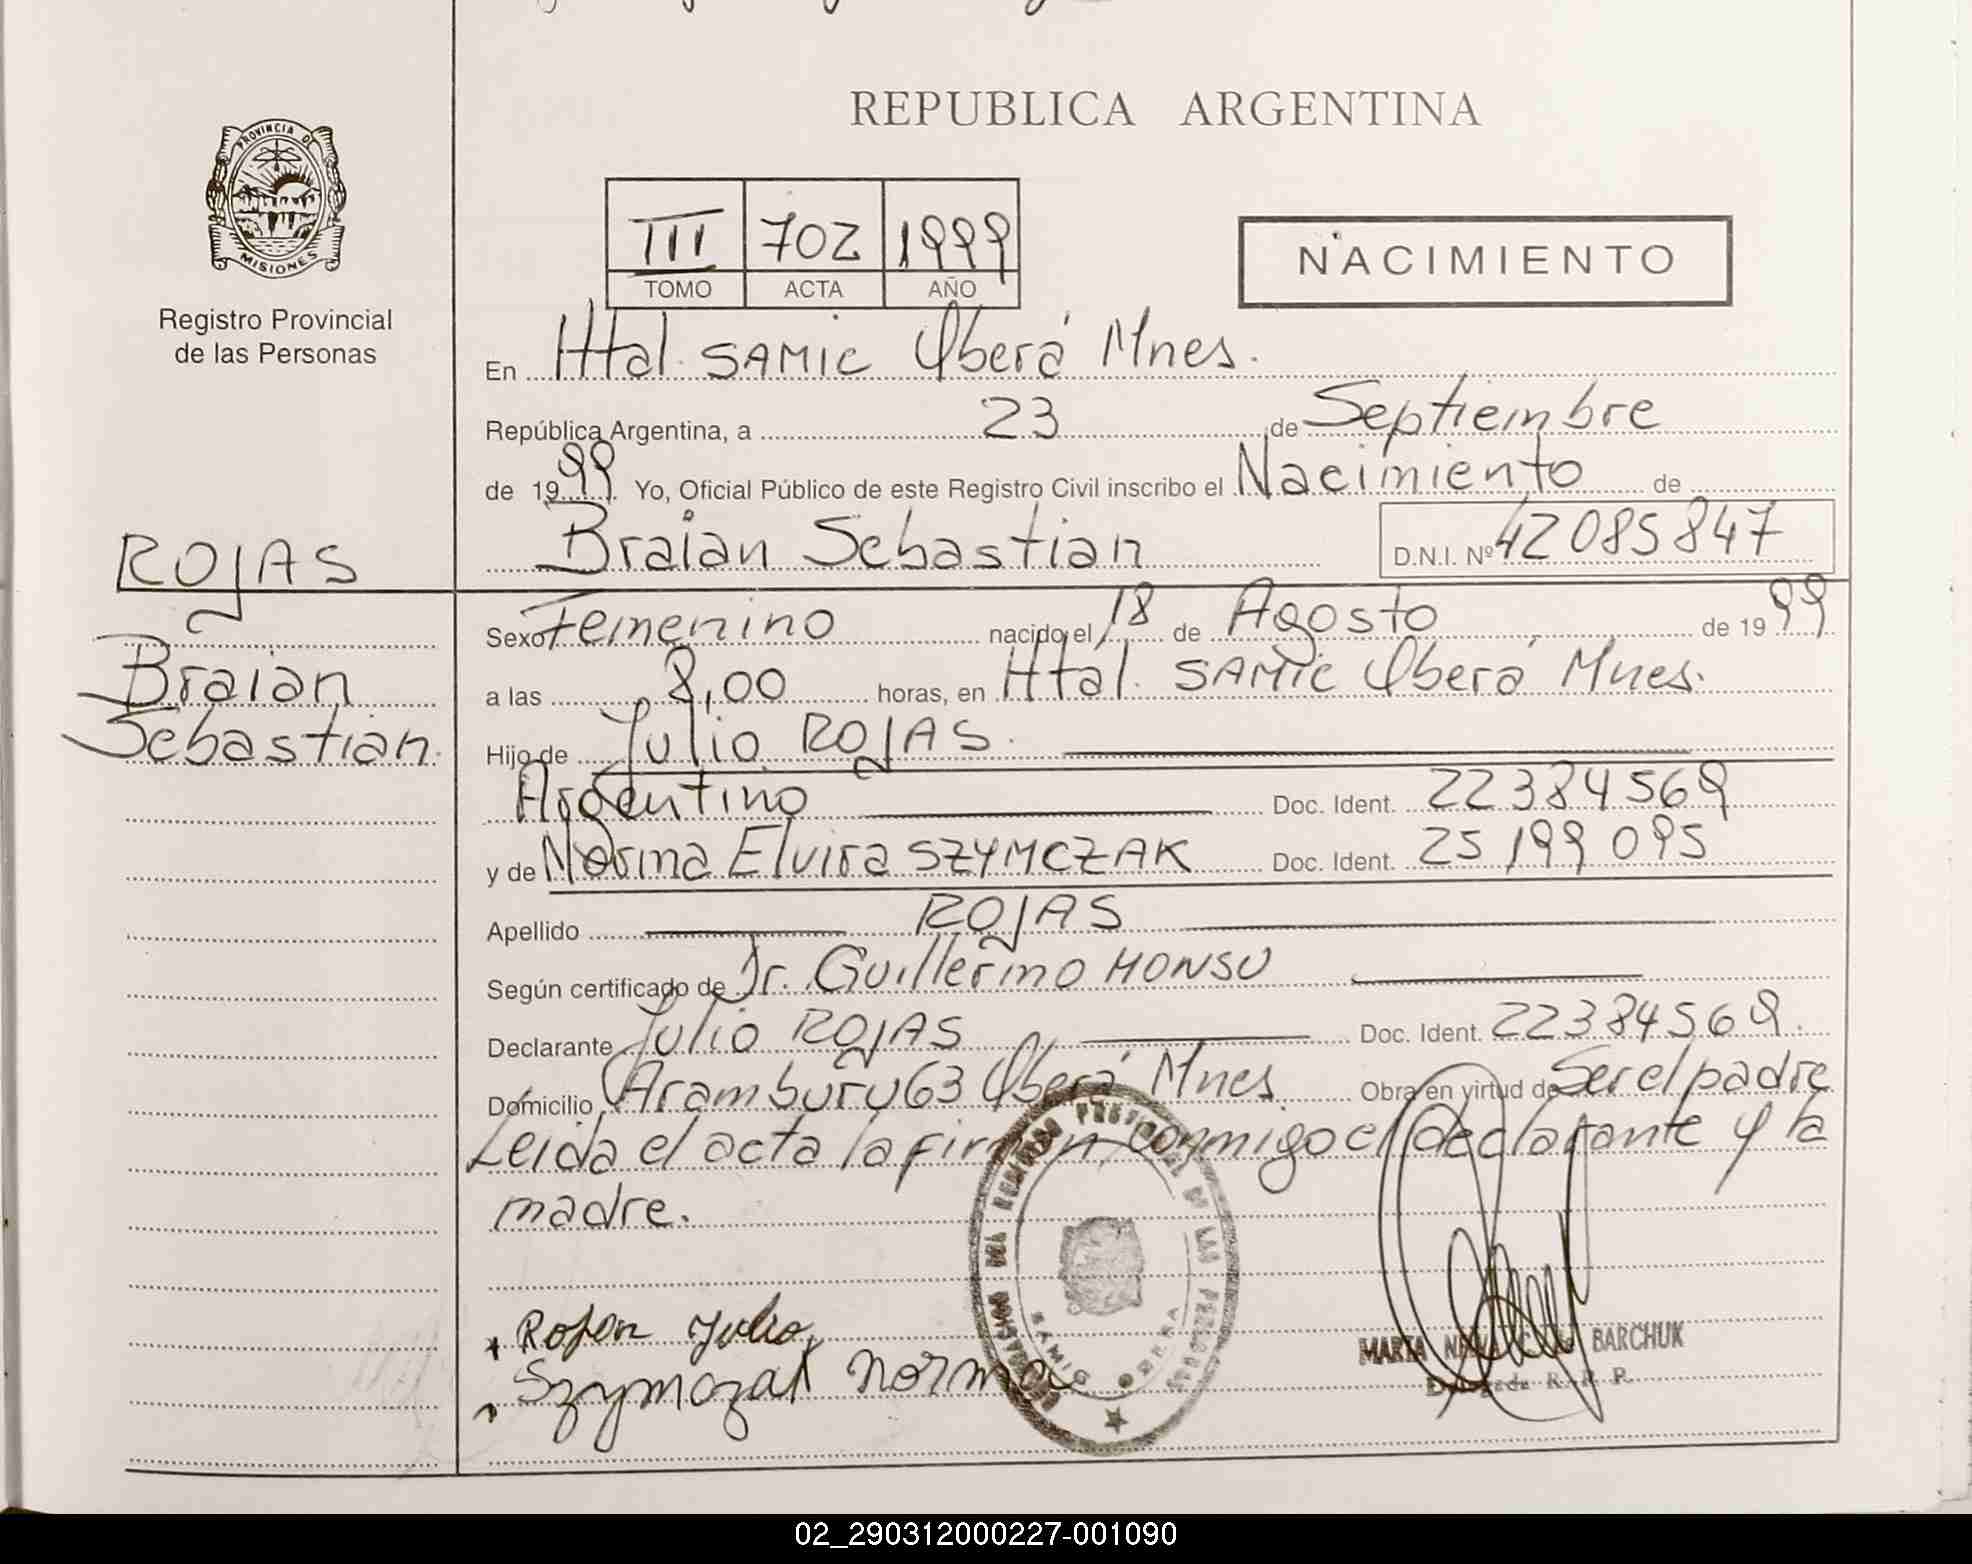 REPUBLICA ARGENTINA
PROVINCIA DE
MISIONES
Registro Provincial
de las Personas
III 702 1999
TOMO ACTA AÑO
NACIMIENTO
En Htal. SAMIC Oberá Mnes.
República Argentina, a 23 de Septiembre
de 1999 Yo, Oficial Público de este Registro Civil inscribo el Nacimiento de
Braian Sebastian D.N.I. Nº 42085847
ROJAS
Braian
Sebastian.
Sexo Femenino nacido el 18 de Agosto de 1999
a las 8,00 horas, en Htal. SAMIC Oberá Mnes.
Hijo de Julio ROJAS.
Argentino Doc. Ident. 22384569
y de Norma Elvira SZYMCZAK Doc. Ident. 25199095
Apellido ROJAS
Según certificado de Dr. Guillermo MONSU
Declarante Julio ROJAS Doc. Ident. 22384569.
Domicilio Aramburu 63 Oberá Mnes. Obra en virtud de Ser el padre
Leida el acta la firman conmigo el declarante y la
madre.
DELEGACION DEL REGISTRO PROVINCIAL DE LAS PERSONAS
SAMIC OBERA
Rojas Julio
Szymczak Norma
MARTA BARCHUK
Delegada R. P. P.
02_290312000227-001090